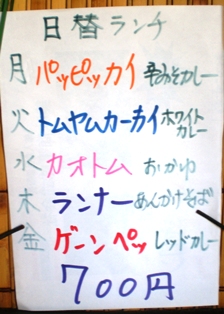 日替ランチ
月 パッピッカイ 辛みそカレー
火 トムヤムカーカイ ホワイトカレー
水 カオトム おかゆ
木 ランナー あんかけそば
金 ゲーンペッ レッドカレー
700円